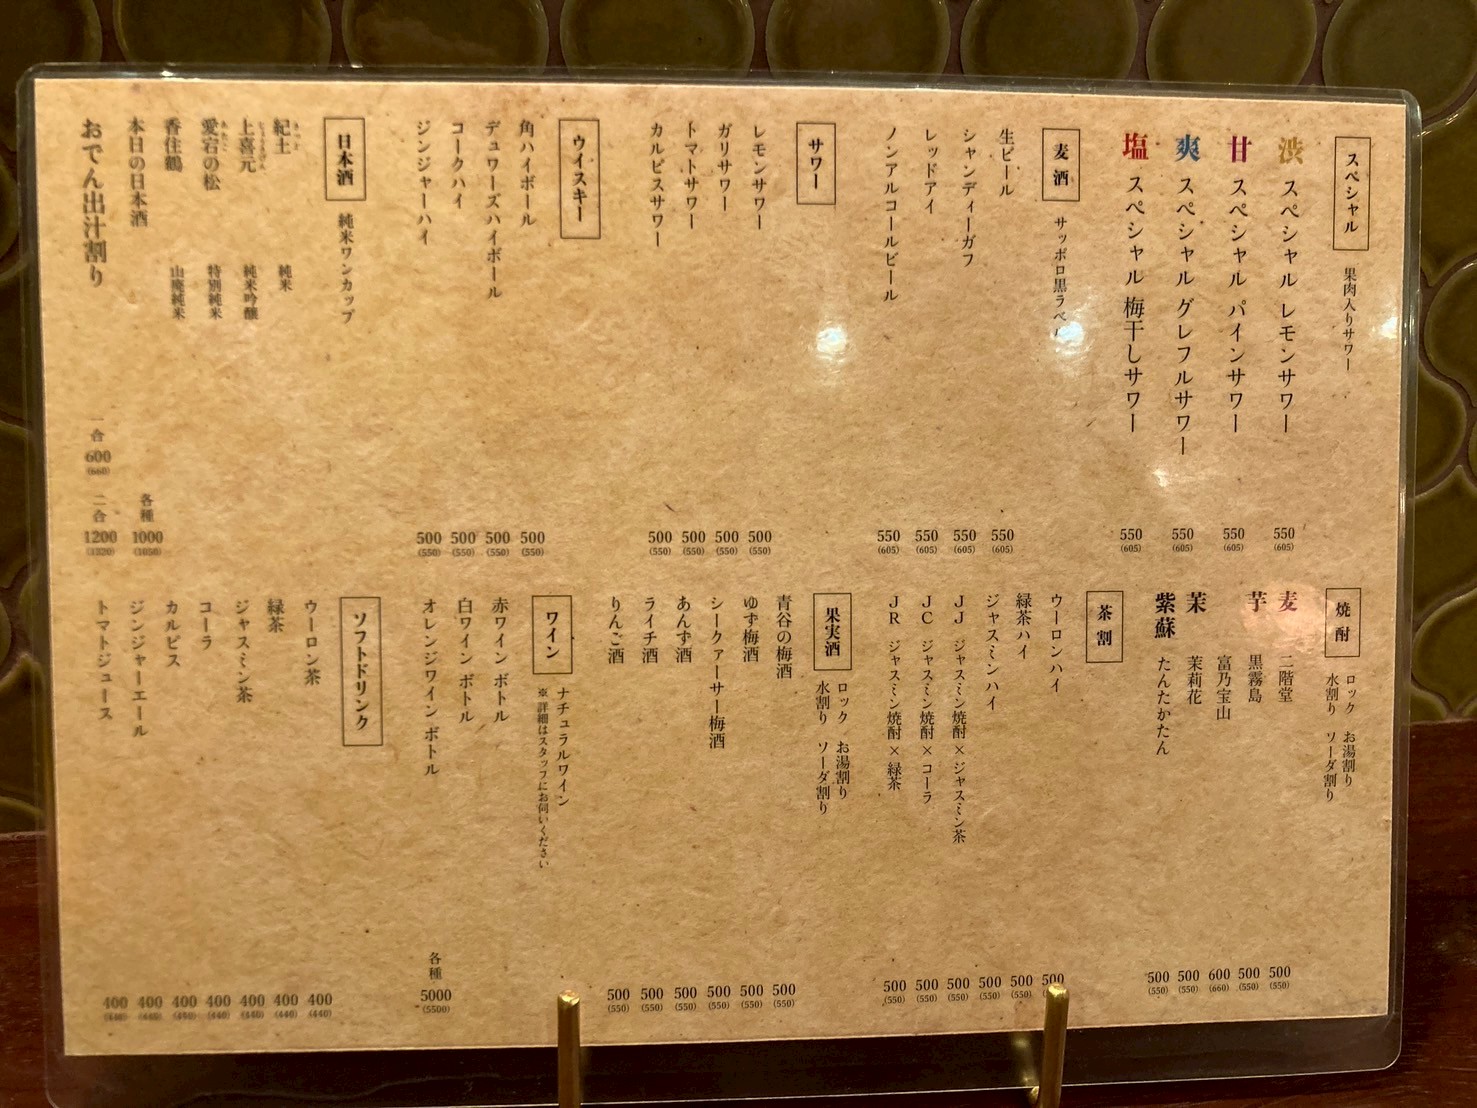 スペシャル 果肉入りサワー
渋 スペシャル レモンサワー 550 (605)
甘 スペシャル パインサワー 550 (605)
爽 スペシャル グレフルサワー 550 (605)
塩 スペシャル 梅干しサワー 550 (605)
麦酒 サッポロ黒ラベル
生ビール 550 (605)
シャンディーガフ 550 (605)
レッドアイ 550 (605)
ノンアルコールビール 550 (605)
サワー
レモンサワー 500 (550)
ガリサワー 500 (550)
トマトサワー 500 (550)
カルピスサワー 500 (550)
ウイスキー
角ハイボール 500 (550)
デュワーズハイボール 500 (550)
コークハイ 500 (550)
ジンジャーハイ 500 (550)
日本酒 純米ワンカップ
紀土 純米
上喜元 純米吟醸
愛宕の松 特別純米
香住鶴 山廃純米
本日の日本酒 各種 1000
おでん出汁割り 一合 600 (660) 二合 1200 (1320)
焼酎 ロック お湯割り
水割り ソーダ割り
麦 二階堂 500 (550)
芋 黒霧島 500 (550)
富乃宝山 600 (660)
茉 茉莉花 500 (550)
紫蘇 たんたかたん 500 (550)
茶割
ウーロンハイ 500 (550)
緑茶ハイ 500 (550)
ジャスミンハイ 500 (550)
JJ ジャスミン焼酎×ジャスミン茶 500 (550)
JC ジャスミン焼酎×コーラ 500 (550)
JR ジャスミン焼酎×緑茶 500 (550)
果実酒 ロック お湯割り
水割り ソーダ割り
青谷の梅酒 500 (550)
ゆず梅酒 500 (550)
シークァーサー梅酒 500 (550)
あんず酒 500 (550)
ライチ酒 500 (550)
りんご酒 500 (550)
ワイン ナチュラルワイン
※詳細はスタッフにお伺いください
赤ワイン ボトル
白ワイン ボトル
オレンジワイン ボトル 各種 5000 (5500)
ソフトドリンク
ウーロン茶 400 (440)
緑茶 400 (440)
ジャスミン茶 400 (440)
コーラ 400 (440)
カルピス 400 (440)
ジンジャーエール 400 (440)
トマトジュース 400 (440)